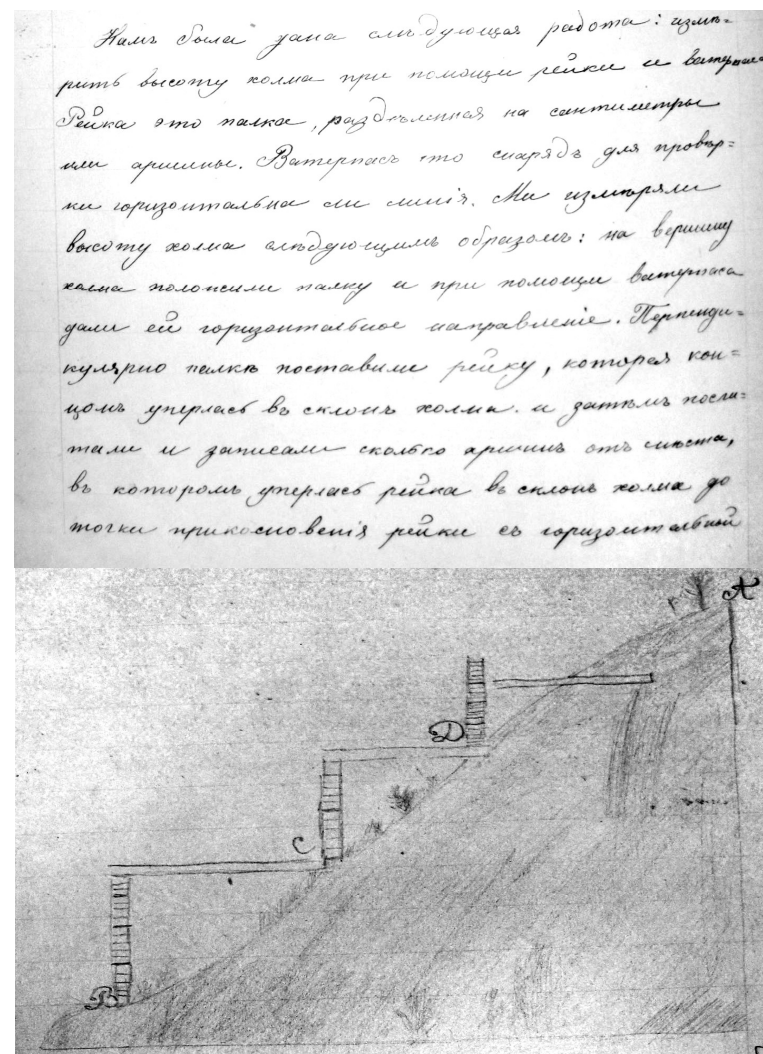 Намъ была дана слѣдующая работа: измѣ=
рить высоту холма при помощи рейки и ватерпаса
Рейка это палка, раздѣленная на сантиметры
или аршины. Ватерпасъ это снарядъ для провѣр=
ки горизонтальна ли линія. Мы измѣряли
высоту холма слѣдующимъ образомъ: на вершину
холма положили палку и при помощи ватерпаса
дали ей горизонтальное направленіе. Перпенди=
кулярно палкѣ поставили рейку, которая кон=
цомъ уперлась въ склонъ холма. и затѣмъ посчи=
тали и записали сколько аршинъ отъ мѣста,
въ которомъ уперлась рейка въ склонъ холма до
точки прикосновенія рейки съ горизонтальной
А
D
С
В